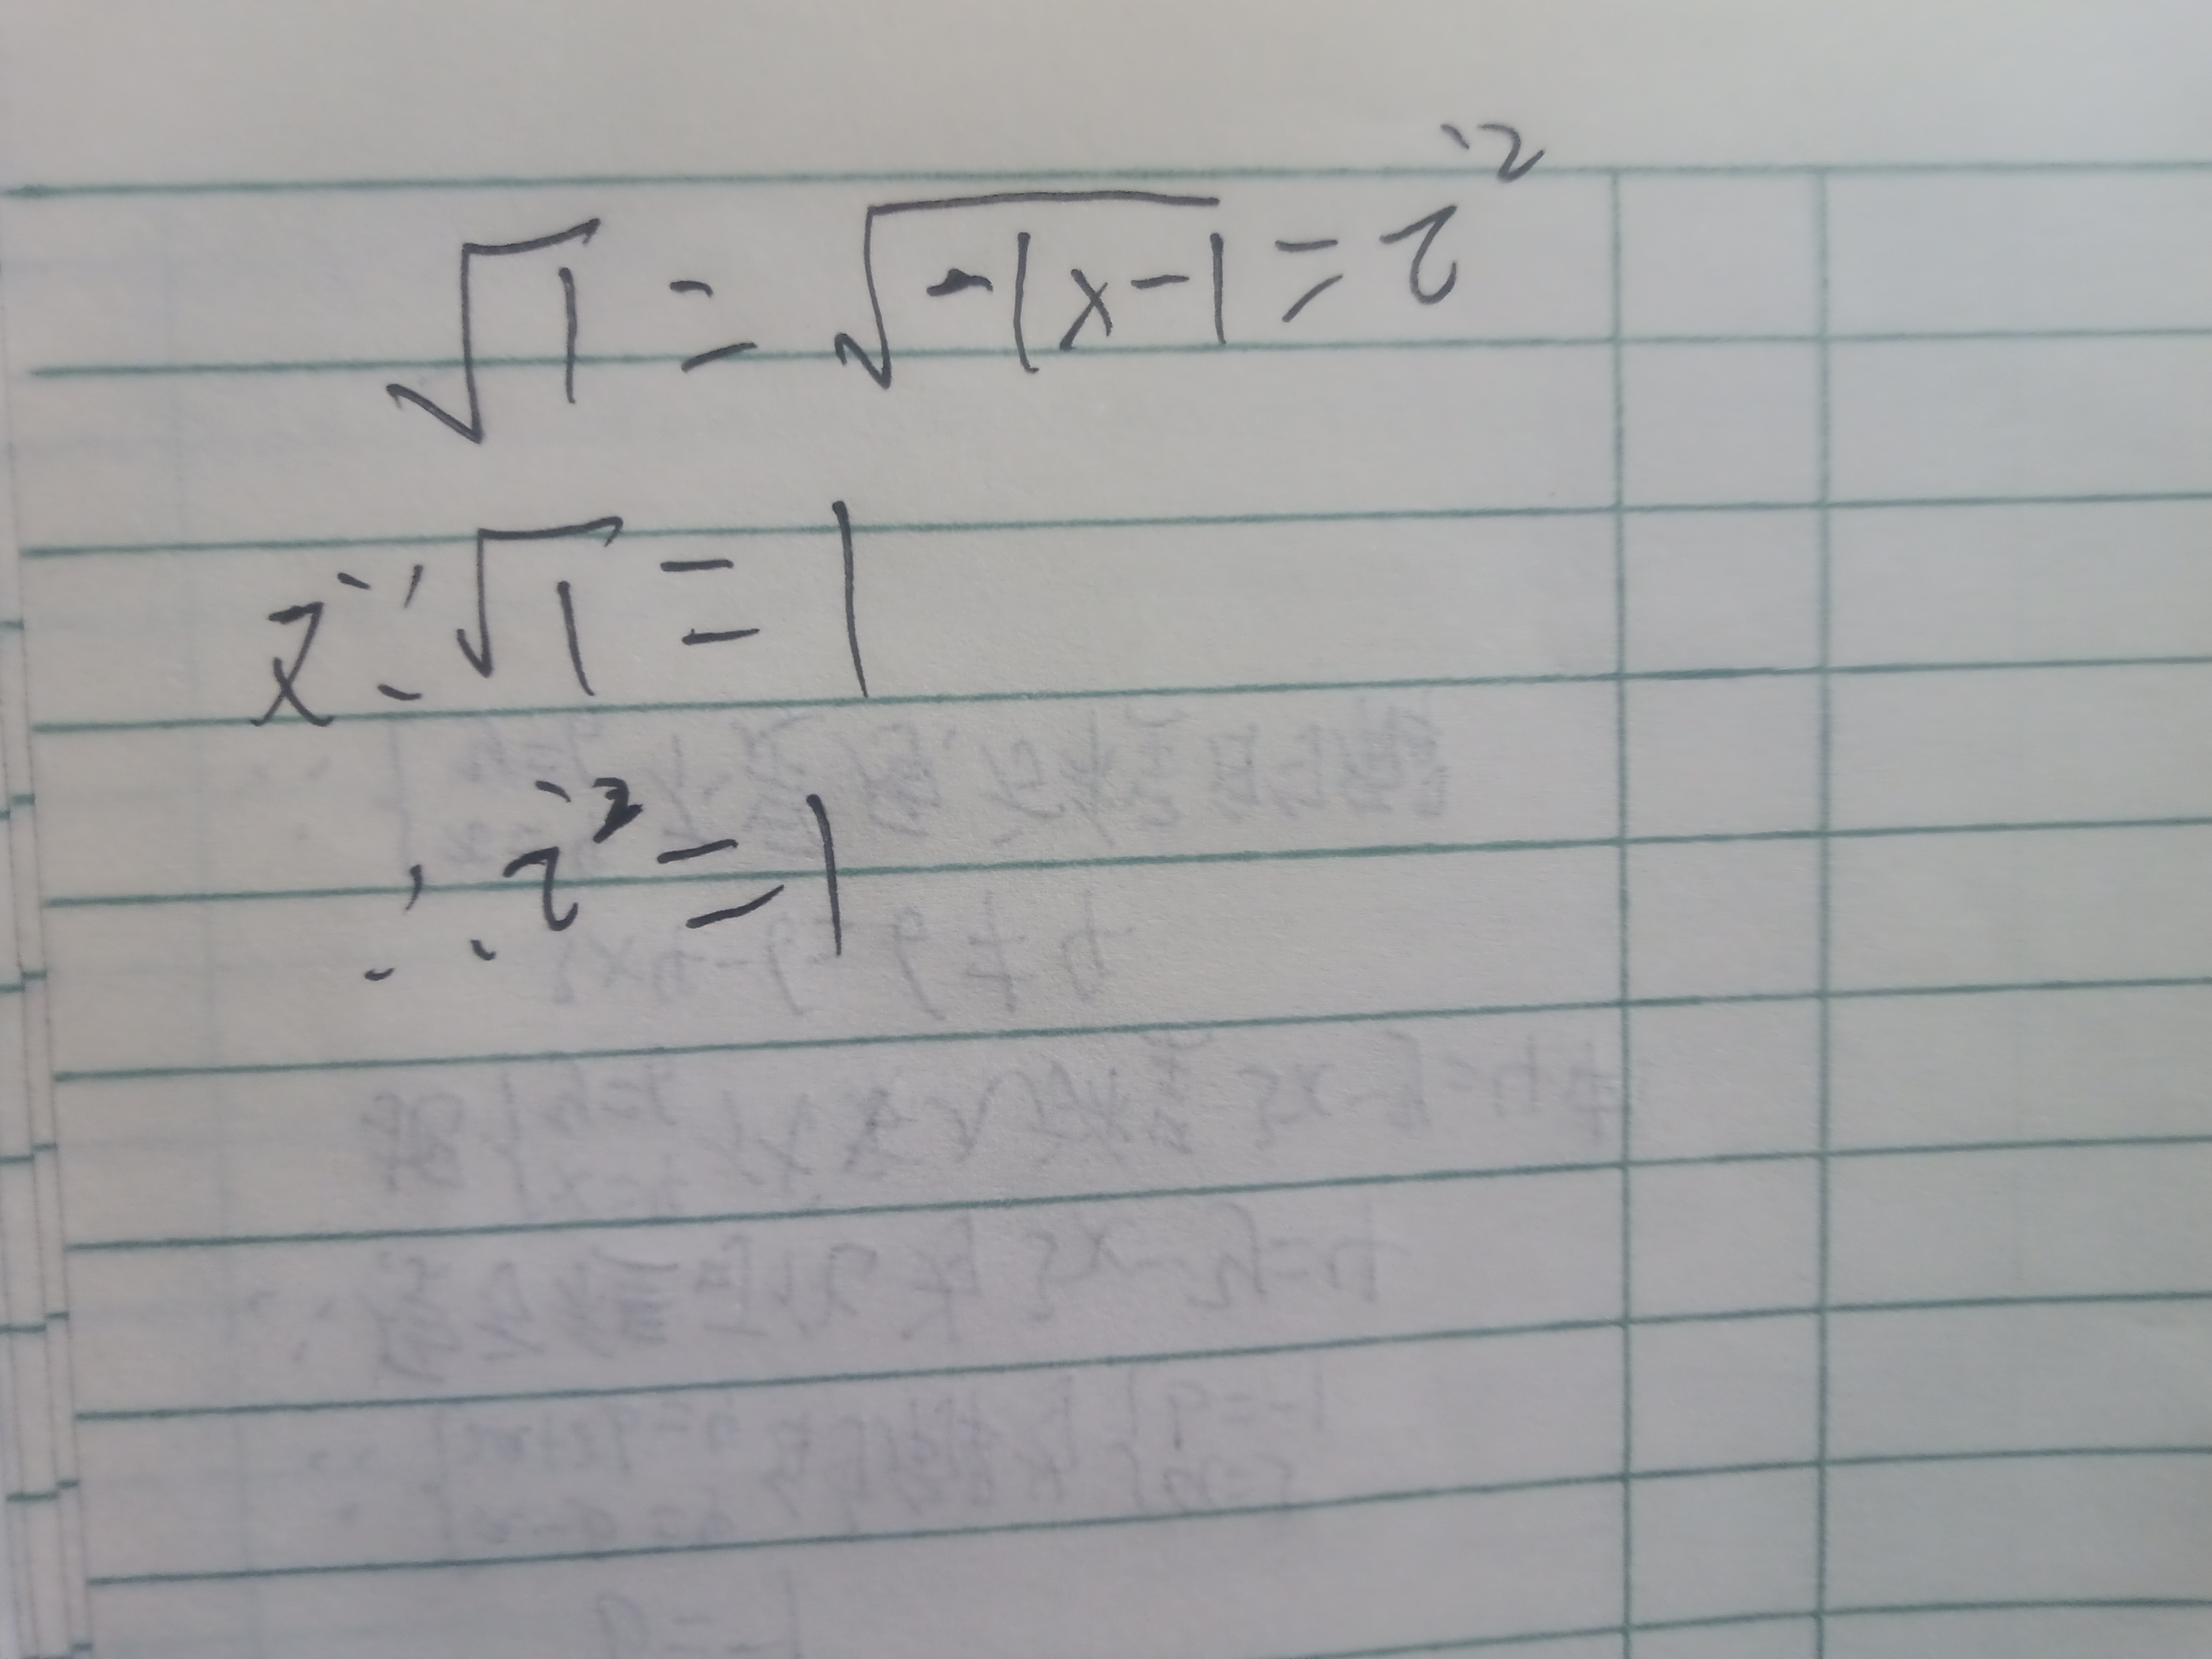 √1 = √(-1×-1) = i²
又∵√1 = 1
∴ i² = 1